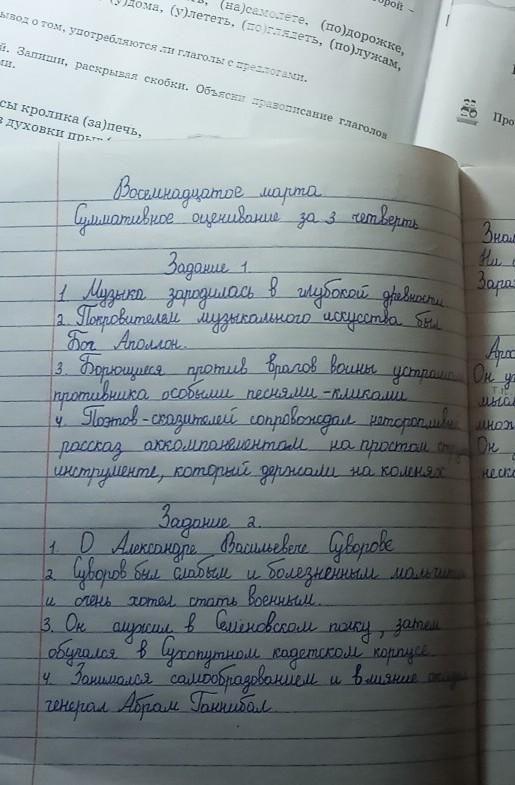 (у)дома, (у)лететь, (на)самолете, (по)дорожке,
(по)глядеть, (по)лужам,
ывод о том, употребляются ли глаголы с предлогами.
й. Запиши, раскрывая скобки. Объясни правописание глаголов
ми.
сы кролика (за)печь,
духовки
Про
Восемнадцатое марта
Суммативное оценивание за 3 четверть
Задание 1
1 Музыка зародилась в глубокой древности
2. Покровителем музыкального искусства был
Бог Аполлон.
3. Борющиеся против врагов воины
противника особыми песнями-кликами
4. Поэтов-сказителей сопровождал
рассказ аккомпанементом на простом
инструменте, который держали на коленях
Задание 2.
1. О Александре Васильевече Суворове
2. Суворов был слабым и болезненным
и очень хотел стать военным.
3. Он служил в Семёновском полку, затем
обучался в Сухопутном кадетском корпусе.
4. Занимался самообразованием и влияние
генерал Абрам Ганнибал.
Ни
Он
Он